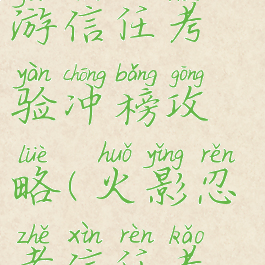 游信任考
yàn chōng bǎng gōng
验冲榜攻
lüè huǒ yǐng rěn
略(火影忍
zhě xìn rèn kǎo
者信任考